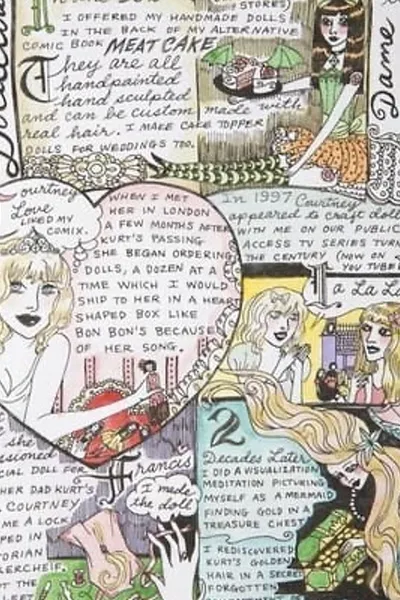 STORES)
I OFFERED MY HANDMADE DOLLS
IN THE BACK OF MY ALTERNATIVE
COMIC BOOK MEAT CAKE
They are all
handpainted
hand sculpted
and can be custom made with
real hair. I MAKE CAKE TOPPER
DOLLS FOR WEDDINGS TOO.
Dame
Courtney
Love
LIKED MY
COMIX.
WHEN I MET
HER IN LONDON
A FEW MONTHS AFTER
KURT'S PASSING
SHE BEGAN ORDERING
DOLLS, A DOZEN AT A
TIME WHICH I WOULD
SHIP TO HER IN A HEART
SHAPED BOX LIKE
BON BON'S BECAUSE
OF HER SONG.
In 1997 Courtney
appeared to craft doll
WITH ME ON OUR PUBLIC
ACCESS TV SERIES TURN
THE CENTURY (NOW ON
YOU TUBE
La La L
she
SIAL DOLL FOR
HER DAD KURT'S
COURTNEY
ME A LOCK
PED IN
TORIAN
LERCHEIF.
OT THE
LEFT
Francis
I made
the doll
2
Decades Later
I DID A VISUALIZATION
MEDITATION PICTURING
MYSELF AS A MERMAID
FINDING GOLD IN A
TREASURE CHEST
I REDISCOVERED
KURT'S GOLDEN
HAIR IN A SECRET
FORGOTTEN